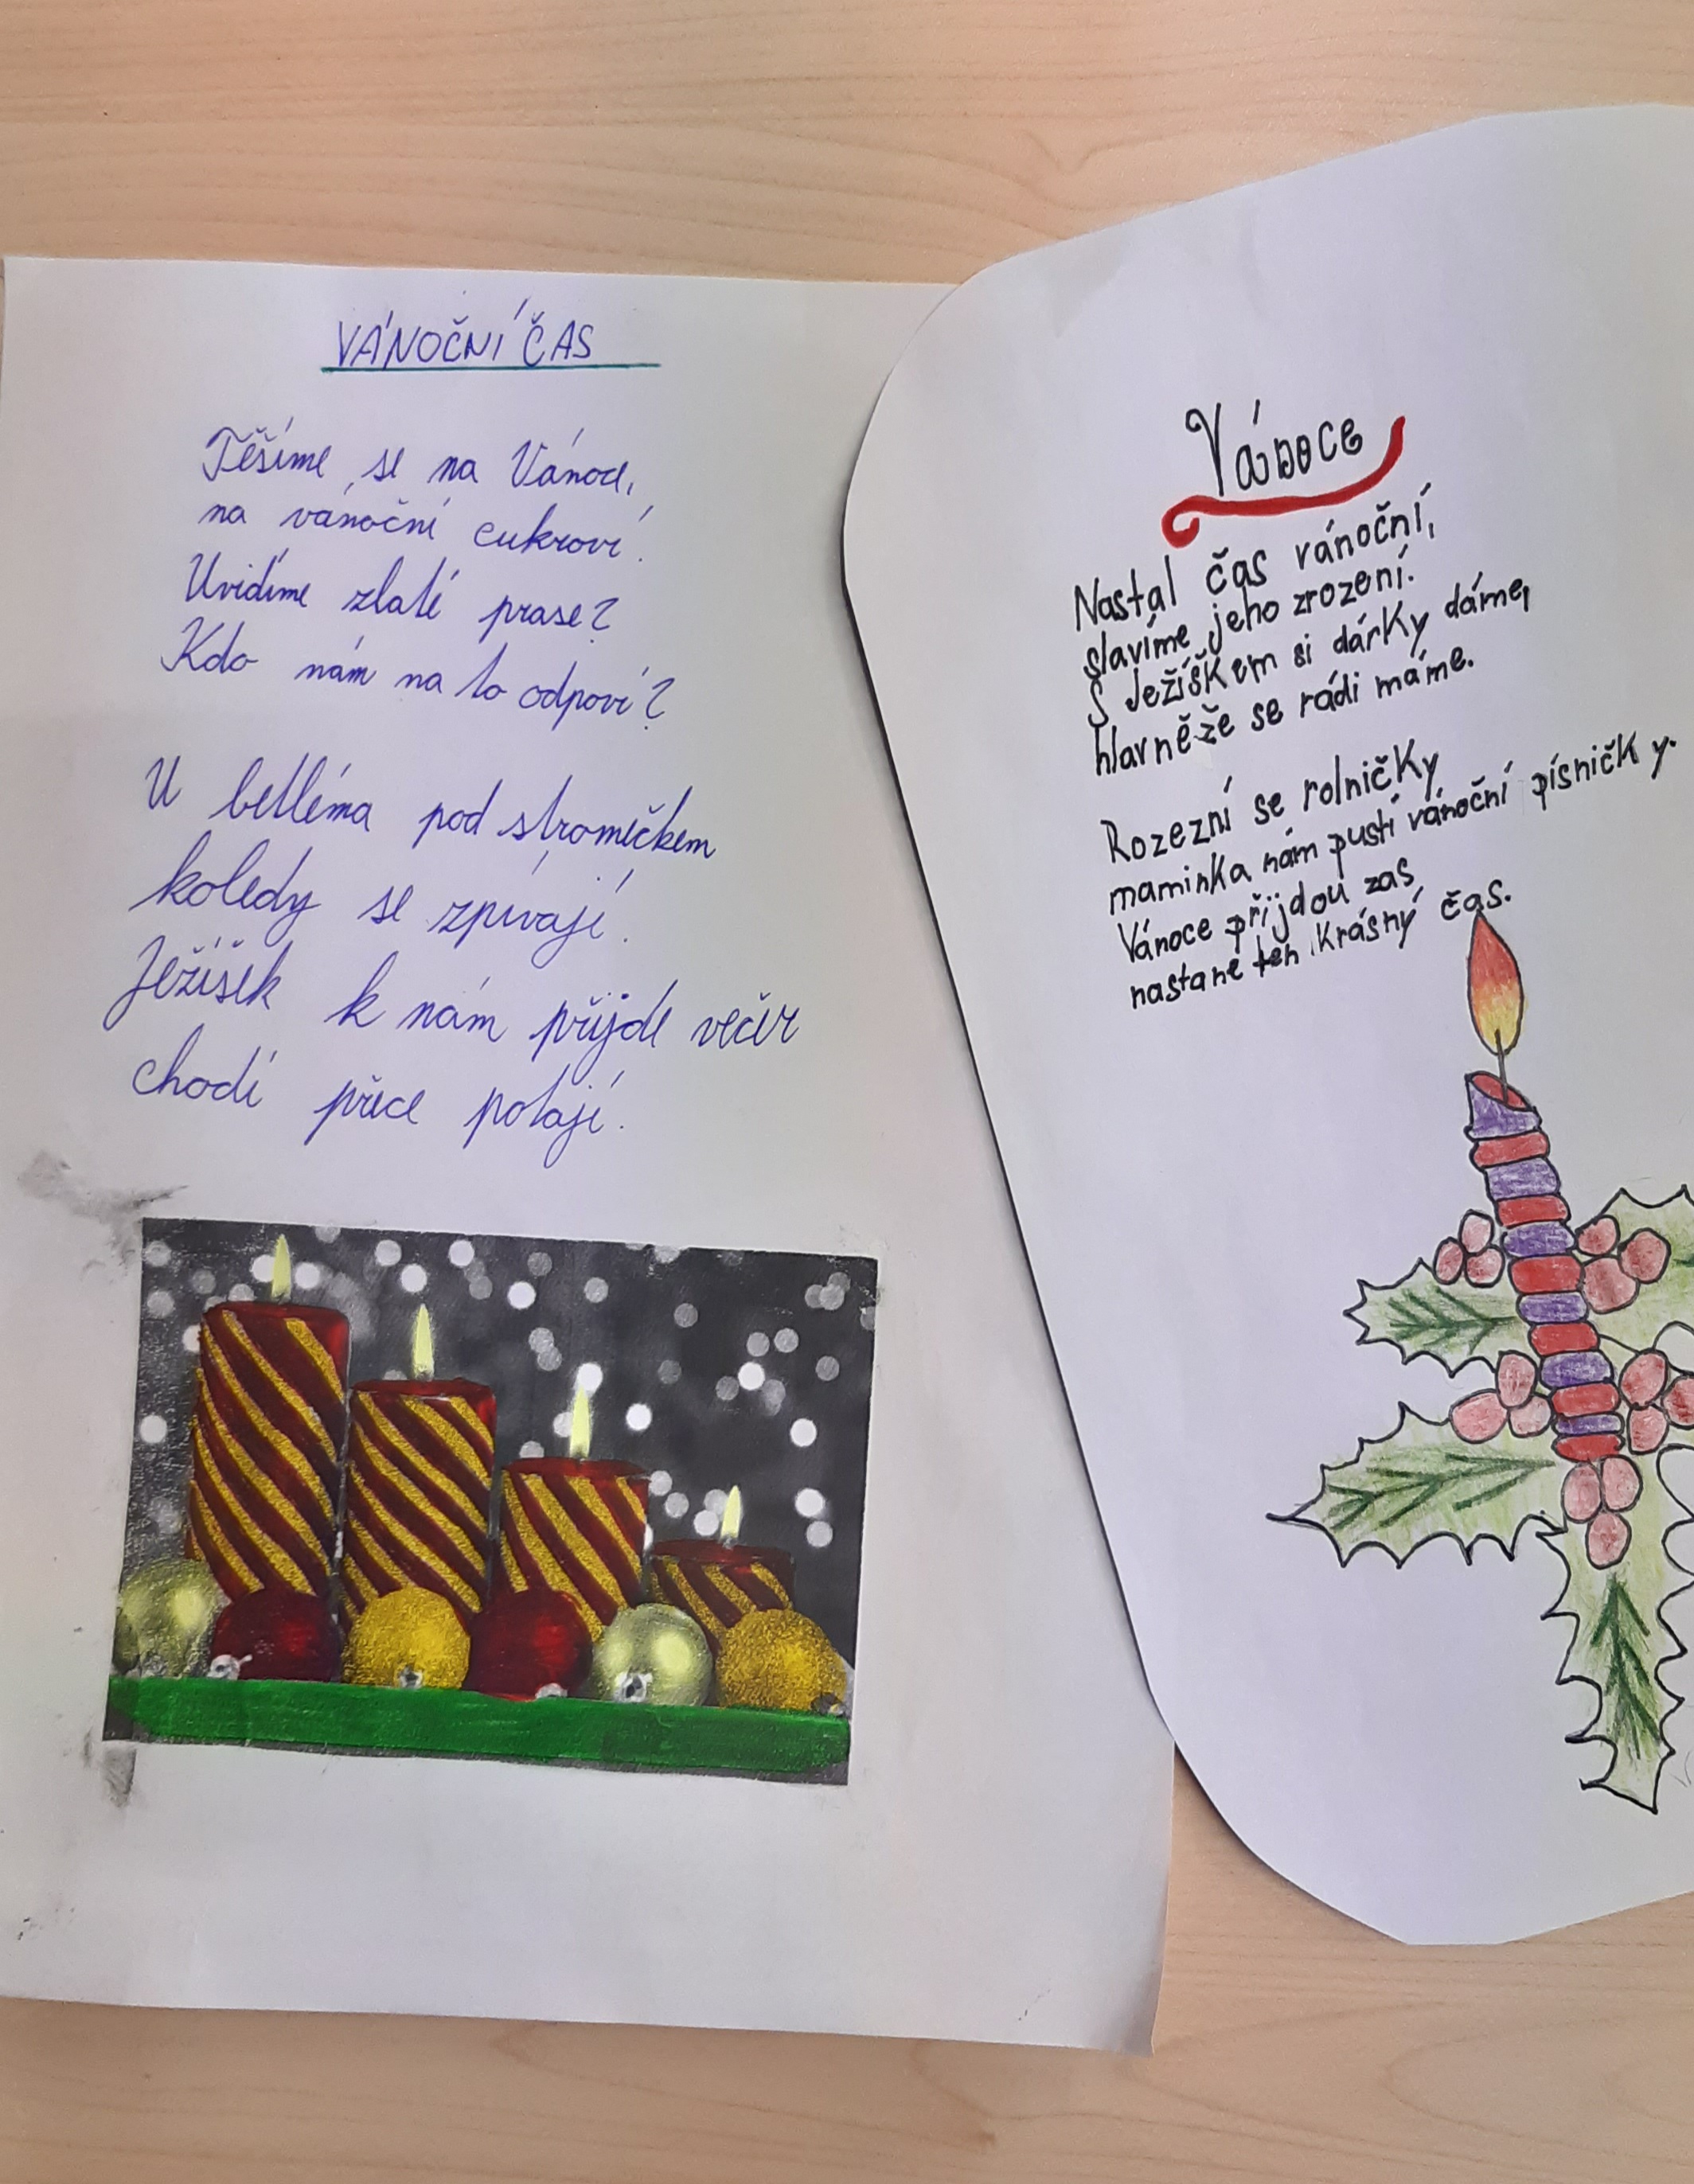 VÁNOČNÍ ČAS
Těšíme se na Vánoce,
na vánoční cukroví.
Uvidíme zlaté prase?
Kdo nám na to odpoví?
U betléma pod stromečkem
koledy se zpívají.
Ježíšek k nám přijde večer
chodí přece potají.
Vánoce
Nastal čas vánoční,
slavíme jeho zrození.
S Ježíškem si dárky dáme,
hlavně že se rádi máme.
Rozezní se rolničky
maminka nám pustí vánoční písničky.
Vánoce přijdou zas
nastane ten krásný čas.